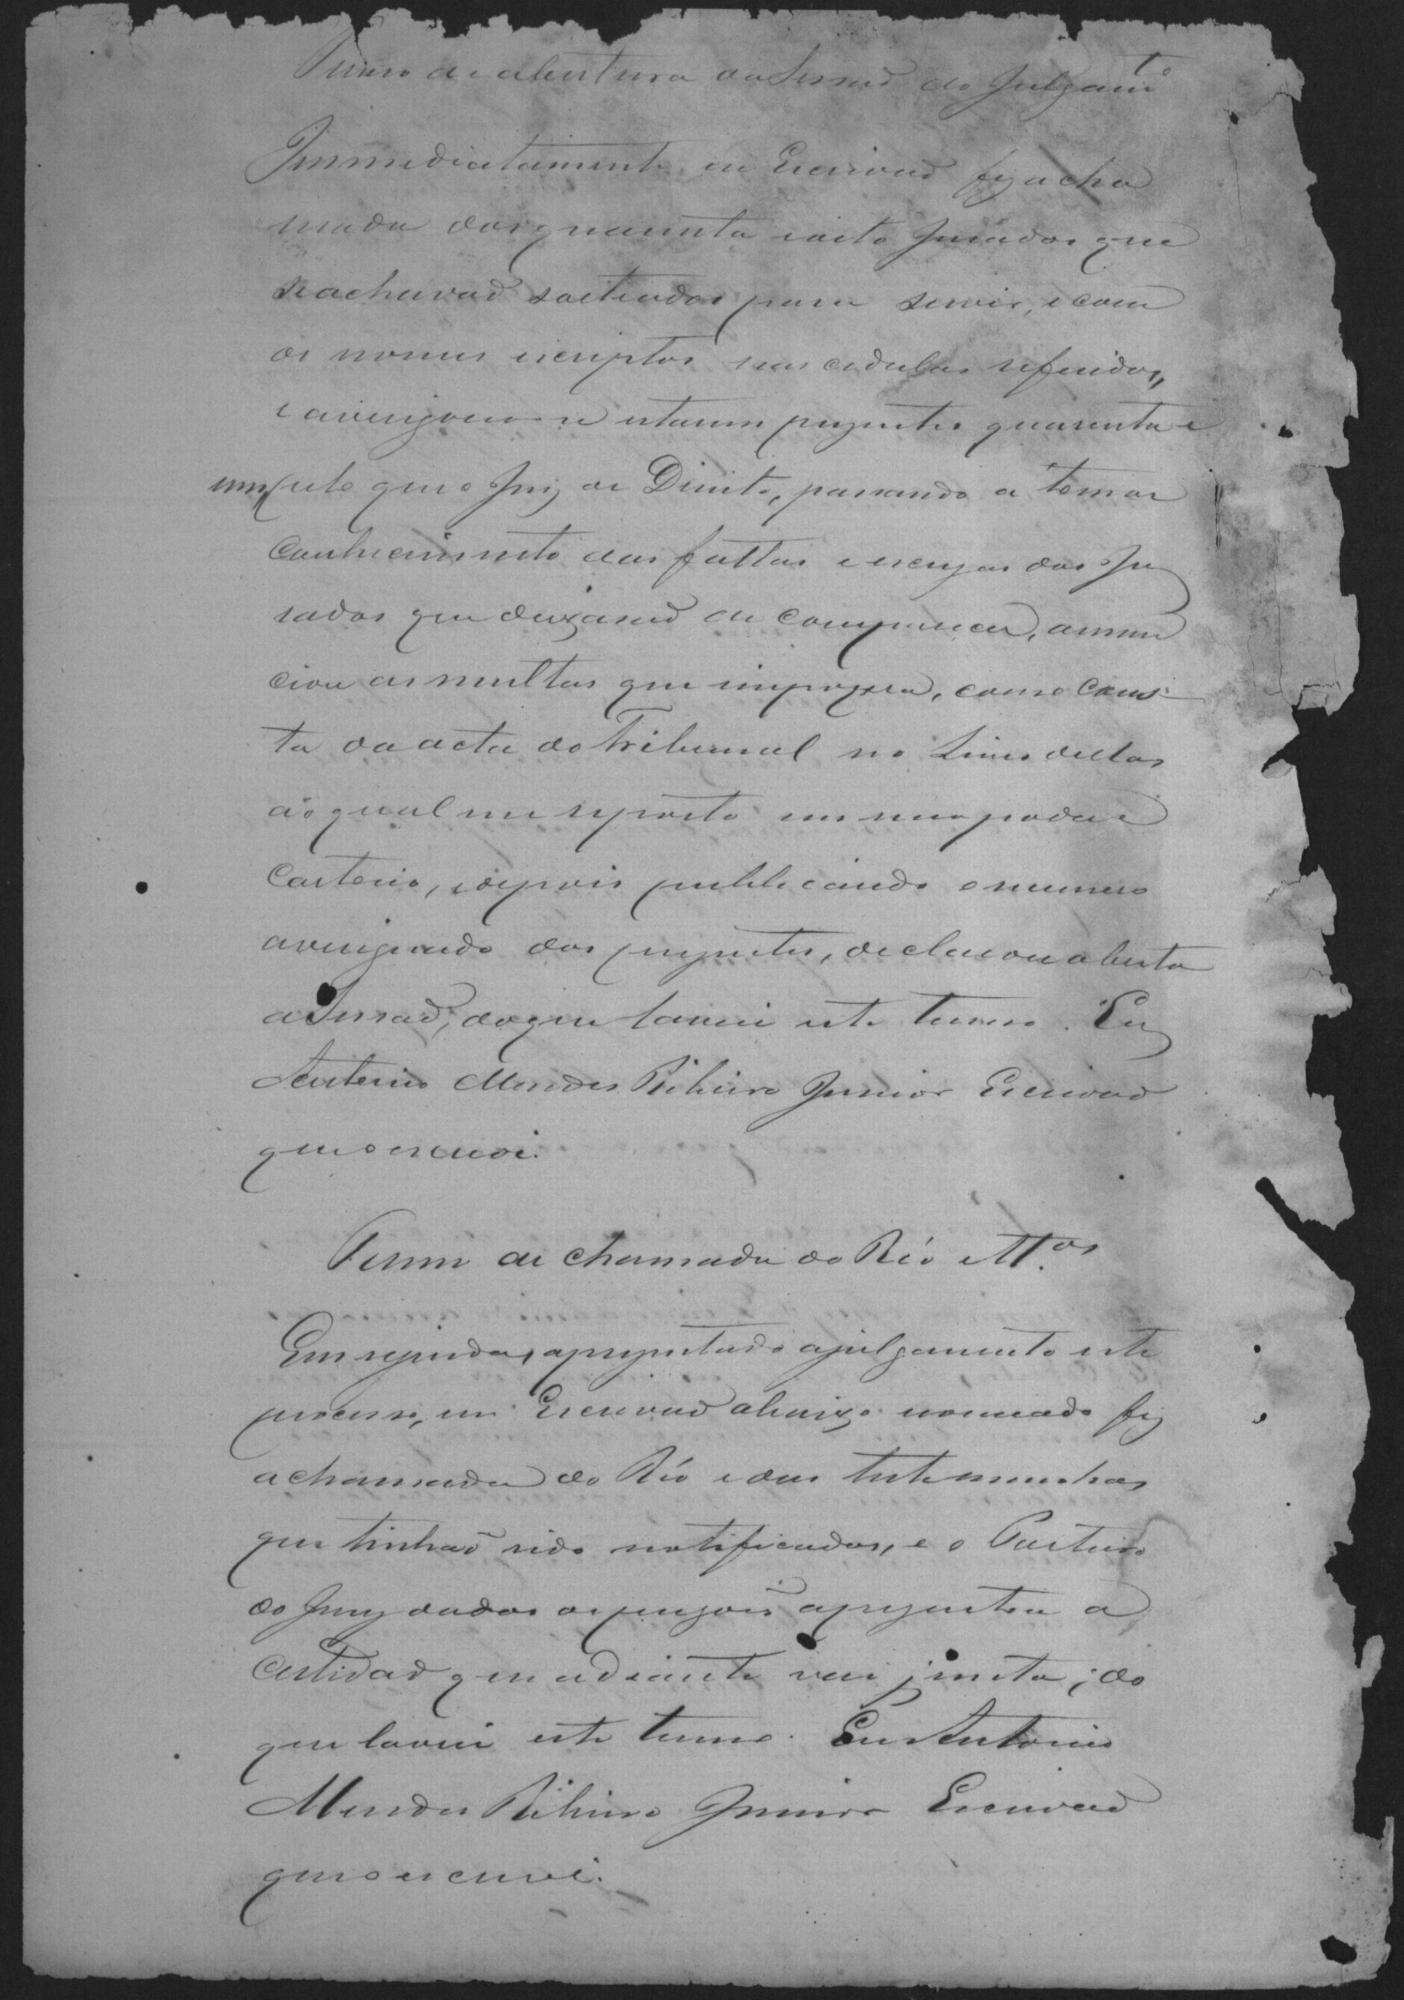 Termo de abertura da Sessaõ do Julgam.to
Immediatamente eu Escrivaõ fiz a cha
mada dos quarenta e oito Jurados que
se achavaõ sorteados para servir, e com
os nomes escriptos nas cedulas referidas,
e averigou-se estarem prezentes quarenta e
um, pelo que o Juiz de Direito, passando a tomar
conhecimento das faltas e escuzas dos Ju
rados que deixaraõ de comparecer, annun
ciou as multas que impozera, como cons
ta da acta do Tribunal no Livro dellas
ao qual me reporto em meo poder e
Cartorio, e depois publicando o numero
averiguado dos prezentes, declarou aberta
a Sessaõ, do que lavrei este termo. Eu
Antonio Mendes Ribeiro Junior Escrivaõ
que o escrevi.
Termo de chamada do Réo e T.as
Em seguida, aprezentado a julgamento este
processo, eu Escrivaõ abaixo nomeado fiz
a chamada do Réo e das testemunhas
que tinhaõ sido notificadas, e o Porteiro
do Jury dados os pregoẽs aprezentou a
certidaõ que adiante vai junta; do
que lavrei este termo. Eu Antonio
Mendes Ribeiro Junior Escrivaõ
que o escrevi.